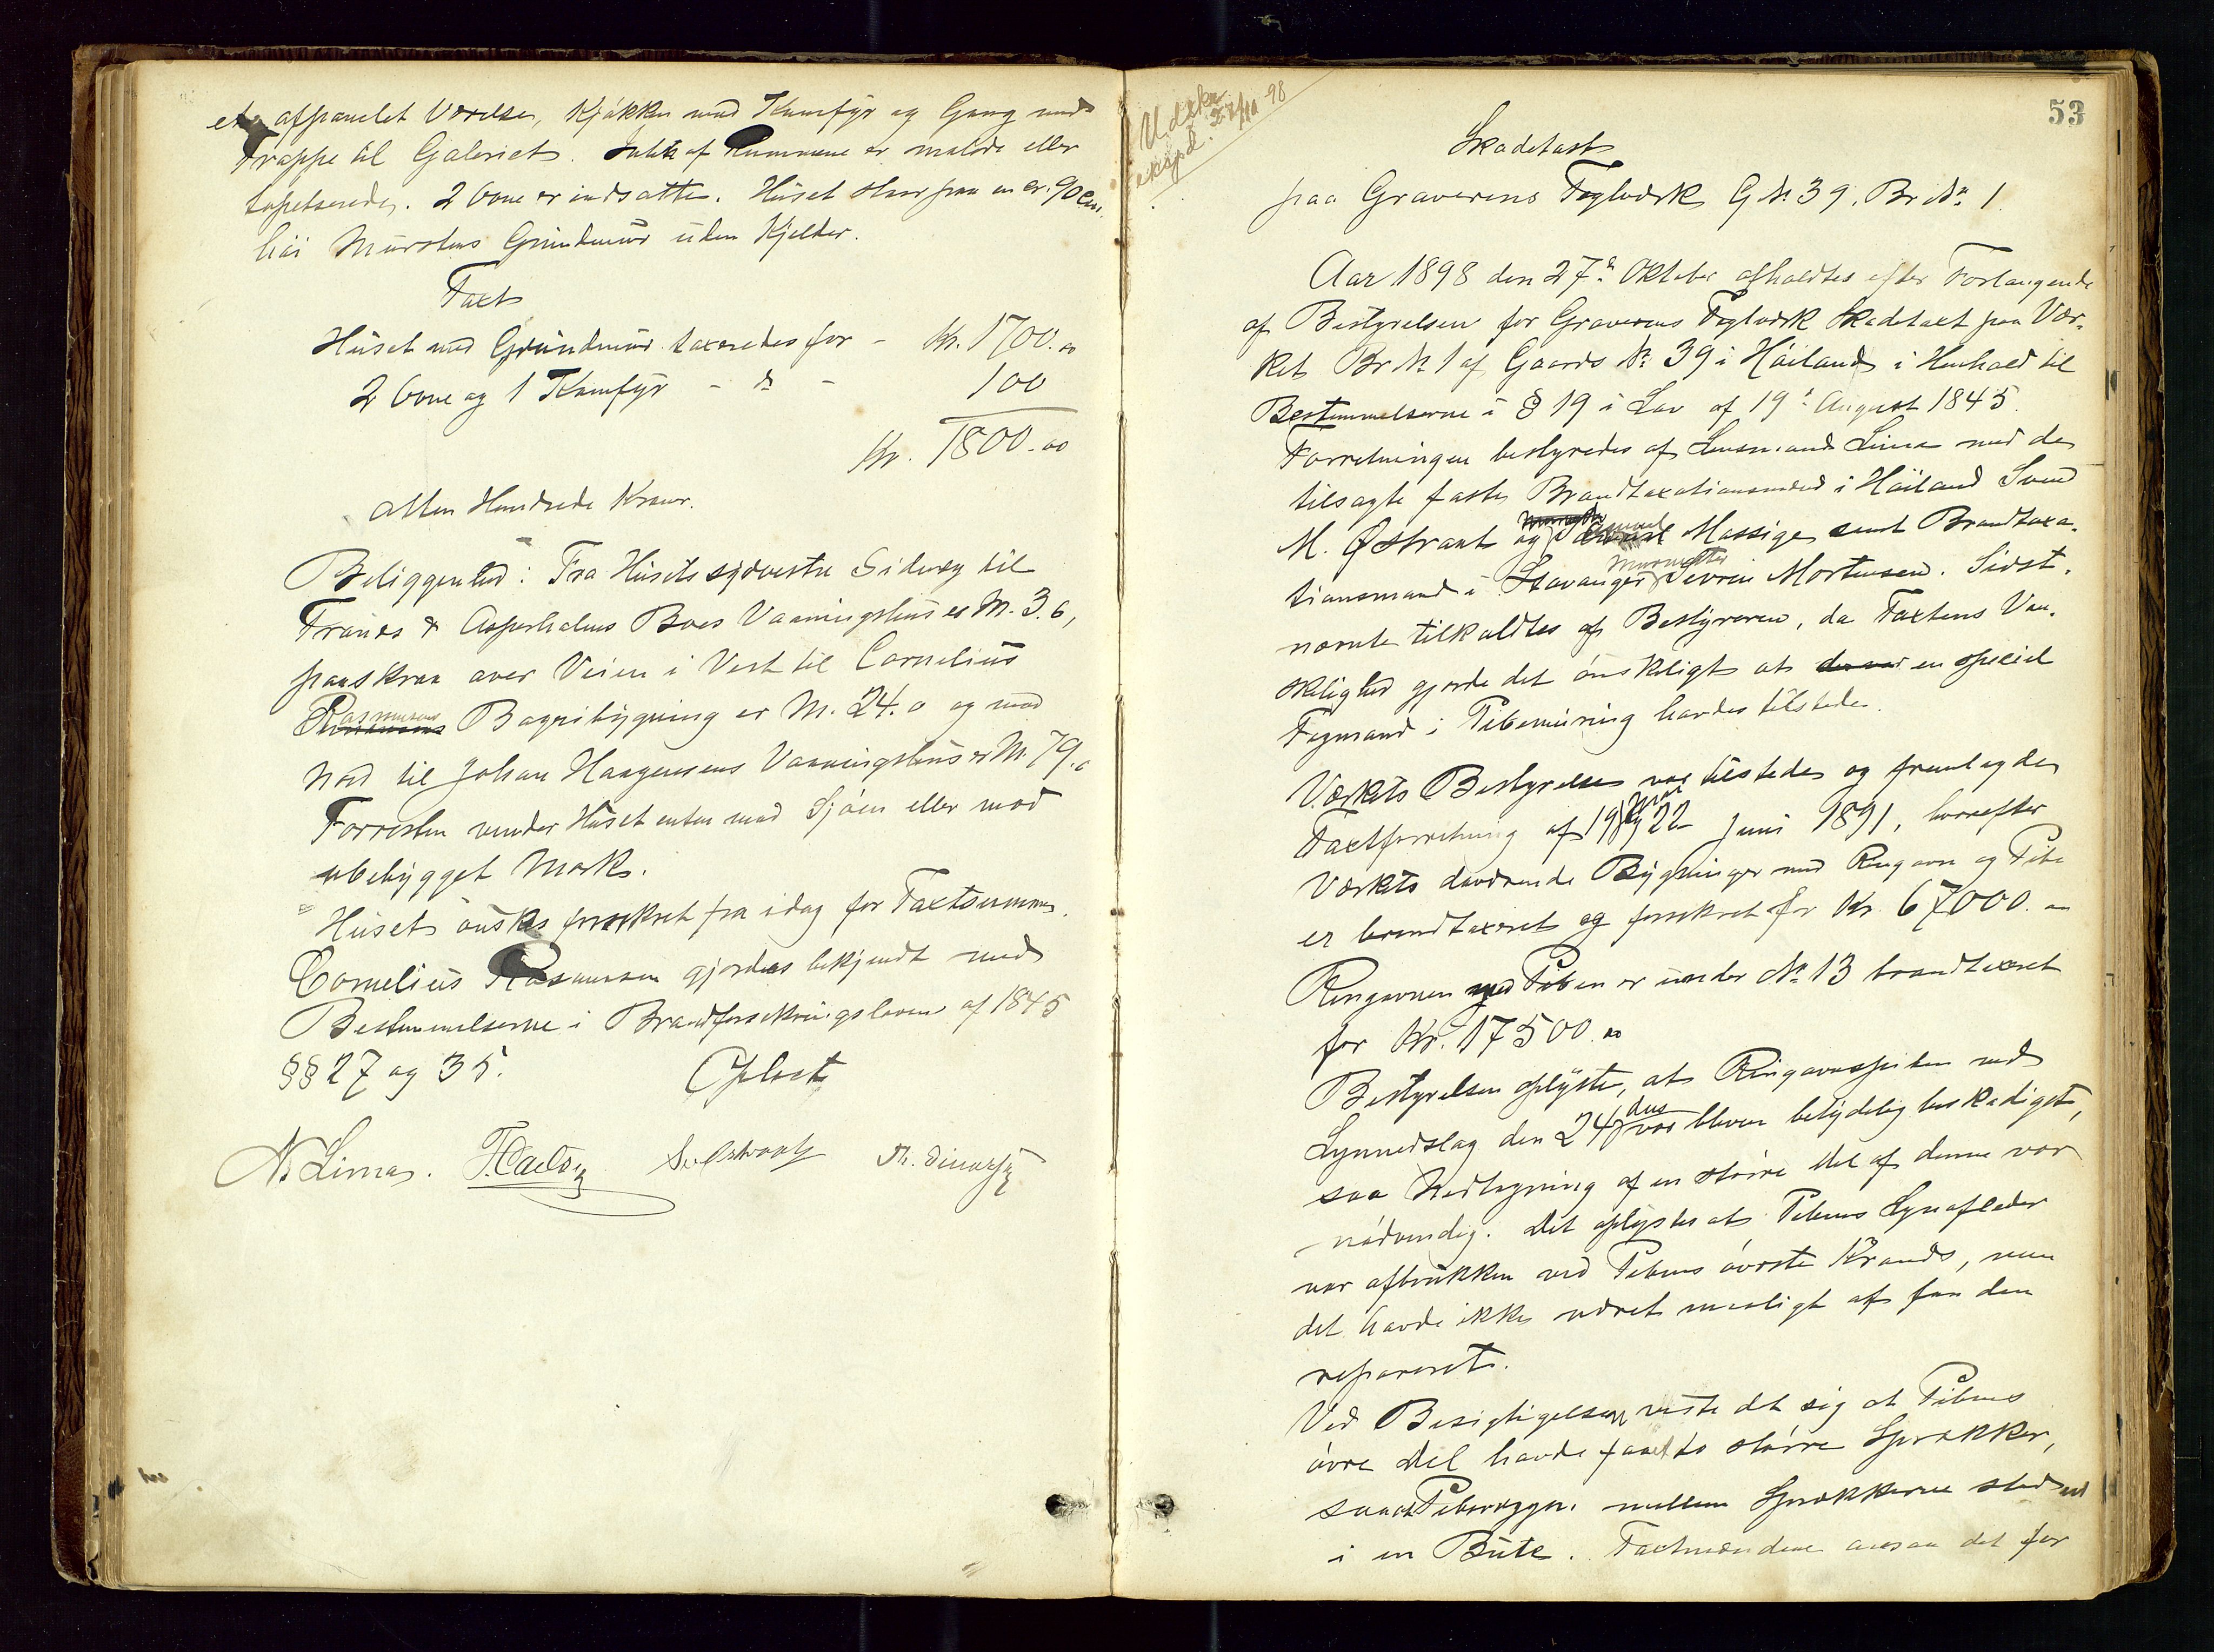 et afpanelet Værelse, Kjøkken med Kumfyr og Gang med
Trappe til Galeriet. af Rummene er malede eller
tapetserede. 2 Ovne er indsatte. Huset staar paa en ca. 90 Cm.
høi Murstens Grundmur uden Kjelder.
Taxt
Huset med Grundmur taxeredes for - Kr. 1700.00
2 Ovne og 1 Kumfyr - do - 100
Kr. 1800.00
atten Hundrede Kroner.
Beliggenhed: Fra Husets sydvestre Sidevæg til
Tranes & Asperholms Boes Vaaningshus er M. 3.6,
paaskraa over Veien i Vest til Cornelius
Rasmusens Bageribygning er M. 24.0 og mod
Nord til Johan Haagensens Vaaningshus er M. 79.0
Forresten vender Huset enten mod Sjøen eller mod
ubebygget Mark.
Huset ønskes forsikret fra idag for Taxtsummen.
Cornelius Rasmussen gjordes bekjendt med
Bestemmelserne i Brandforsikringsloven af 1845
§§ 27 og 35. Oplæst
N. Lima.
Udskr.
expd. 27/10 98
53
Skadetaxt
paa Graverens Teglværk G.N. 39. Br.Nr. 1.
Aar 1898 den 27de Oktober afholdtes efter Forlangende
af Bestyrelsen for Graverens Teglværk Skadetaxt paa Vær-
ket Br.N. 1 af Gaards N. 39 i Høiland i Henhold til
Bestemmelserne i § 19 i Lov af 19de August 1845.
Forretningen bestyredes af Lensmand Lima med de
tilsagte faste Brandtaxationsmænd i Høiland Svend
M. Østraat og Massige samt Brandtaxa-
tionsmand i Stavanger Murmester Severin Mortensen. Sidst-
nævnte tilkaldtes af Bestyreren, da Taxtens Van-
skelighed gjorde det ønskeligt at en speciel
Fagmand i Pibemuring havdes tilstede.
Værkets Bestyrelse var tilstede og fremlagde
Taxtforretning af 19de og 22de Juni 1891, hvorefter
Værkets daværende Bygninger med Ringovn og Pibe
er brandtaxeret og forsikret for Kr. 67000.00
Ringovnen med Piben er under No. 13 brandtaxeret
for Kr. 17500.00
Bestyrelsen oplyste, at Ringovnspiben ved
Lynnedslag den 24 ds var bleven betydelig beskadiget,
saa Nedtagning af en større Del af denne var
nødvendig. Det oplystes at Pibens Lynafleder
var afbrukken ved Pibens øverste Krands, men
det havde ikke været muligt at faa den
repareret.
Ved Besigtigelsen viste det sig at Pibens
øvre Del havde faaet to større Sprækker,
saa at Pibevæggen mellem Sprækkerne stod ud
i en Bute. Taxtmændene ansaa det for